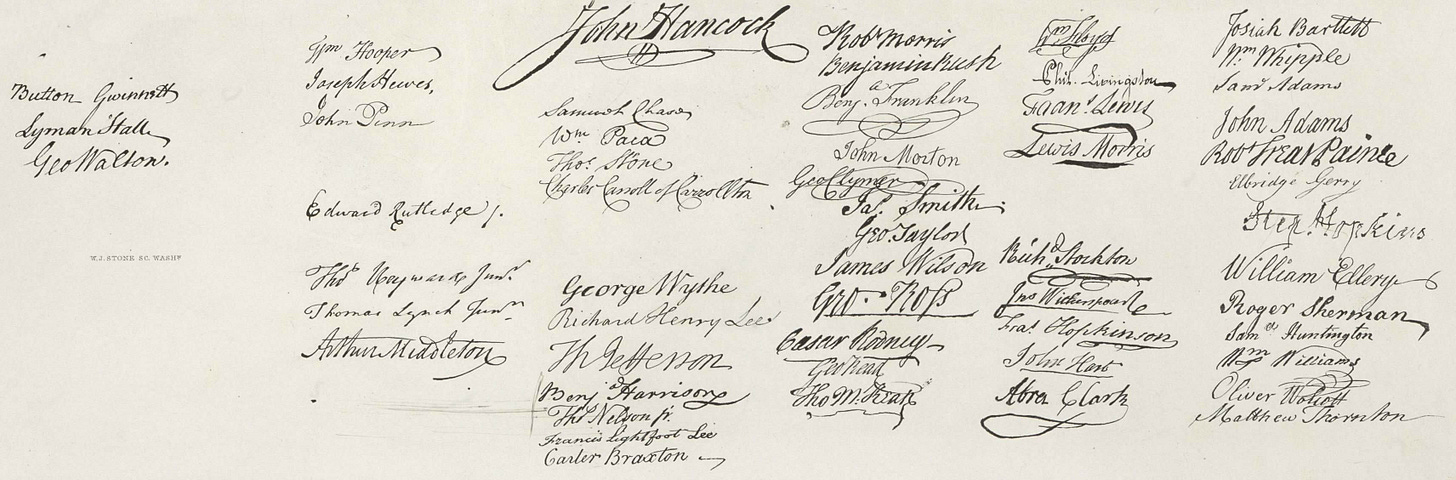 Button Gwinnett
Lyman Hall
Geo Walton.
W. J. STONE SC. WASHN
Wm Hooper
Joseph Hewes,
John Penn
Edward Rutledge /.
Thos Heyward Junr.
Thomas Lynch Junr.
Arthur Middleton
John Hancock
Samuel Chase
Wm. Paca
Thos. Stone
Charles Carroll of Carrollton
George Wythe
Richard Henry Lee
Th Jefferson
Benj Harrison
Thos Nelson jr.
Francis Lightfoot Lee
Carter Braxton
Robt Morris
Benjamin Rush
Benj. Franklin
John Morton
Geo Clymer
Jas. Smith.
Geo. Taylor
James Wilson
Geo. Ross
Caesar Rodney
Geo Read
Tho M:Kean
Wm Floyd
Phil. Livingston
Frans. Lewis
Lewis Morris
Richd. Stockton
Jno Witherspoon
Fras. Hopkinson
John Hart
Abra Clark
Josiah Bartlett
Wm. Whipple
Saml Adams
John Adams
Robt Treat Paine
Elbridge Gerry
Step. Hopkins
William Ellery
Roger Sherman
Saml Huntington
Wm Williams
Oliver Wolcott
Matthew Thornton